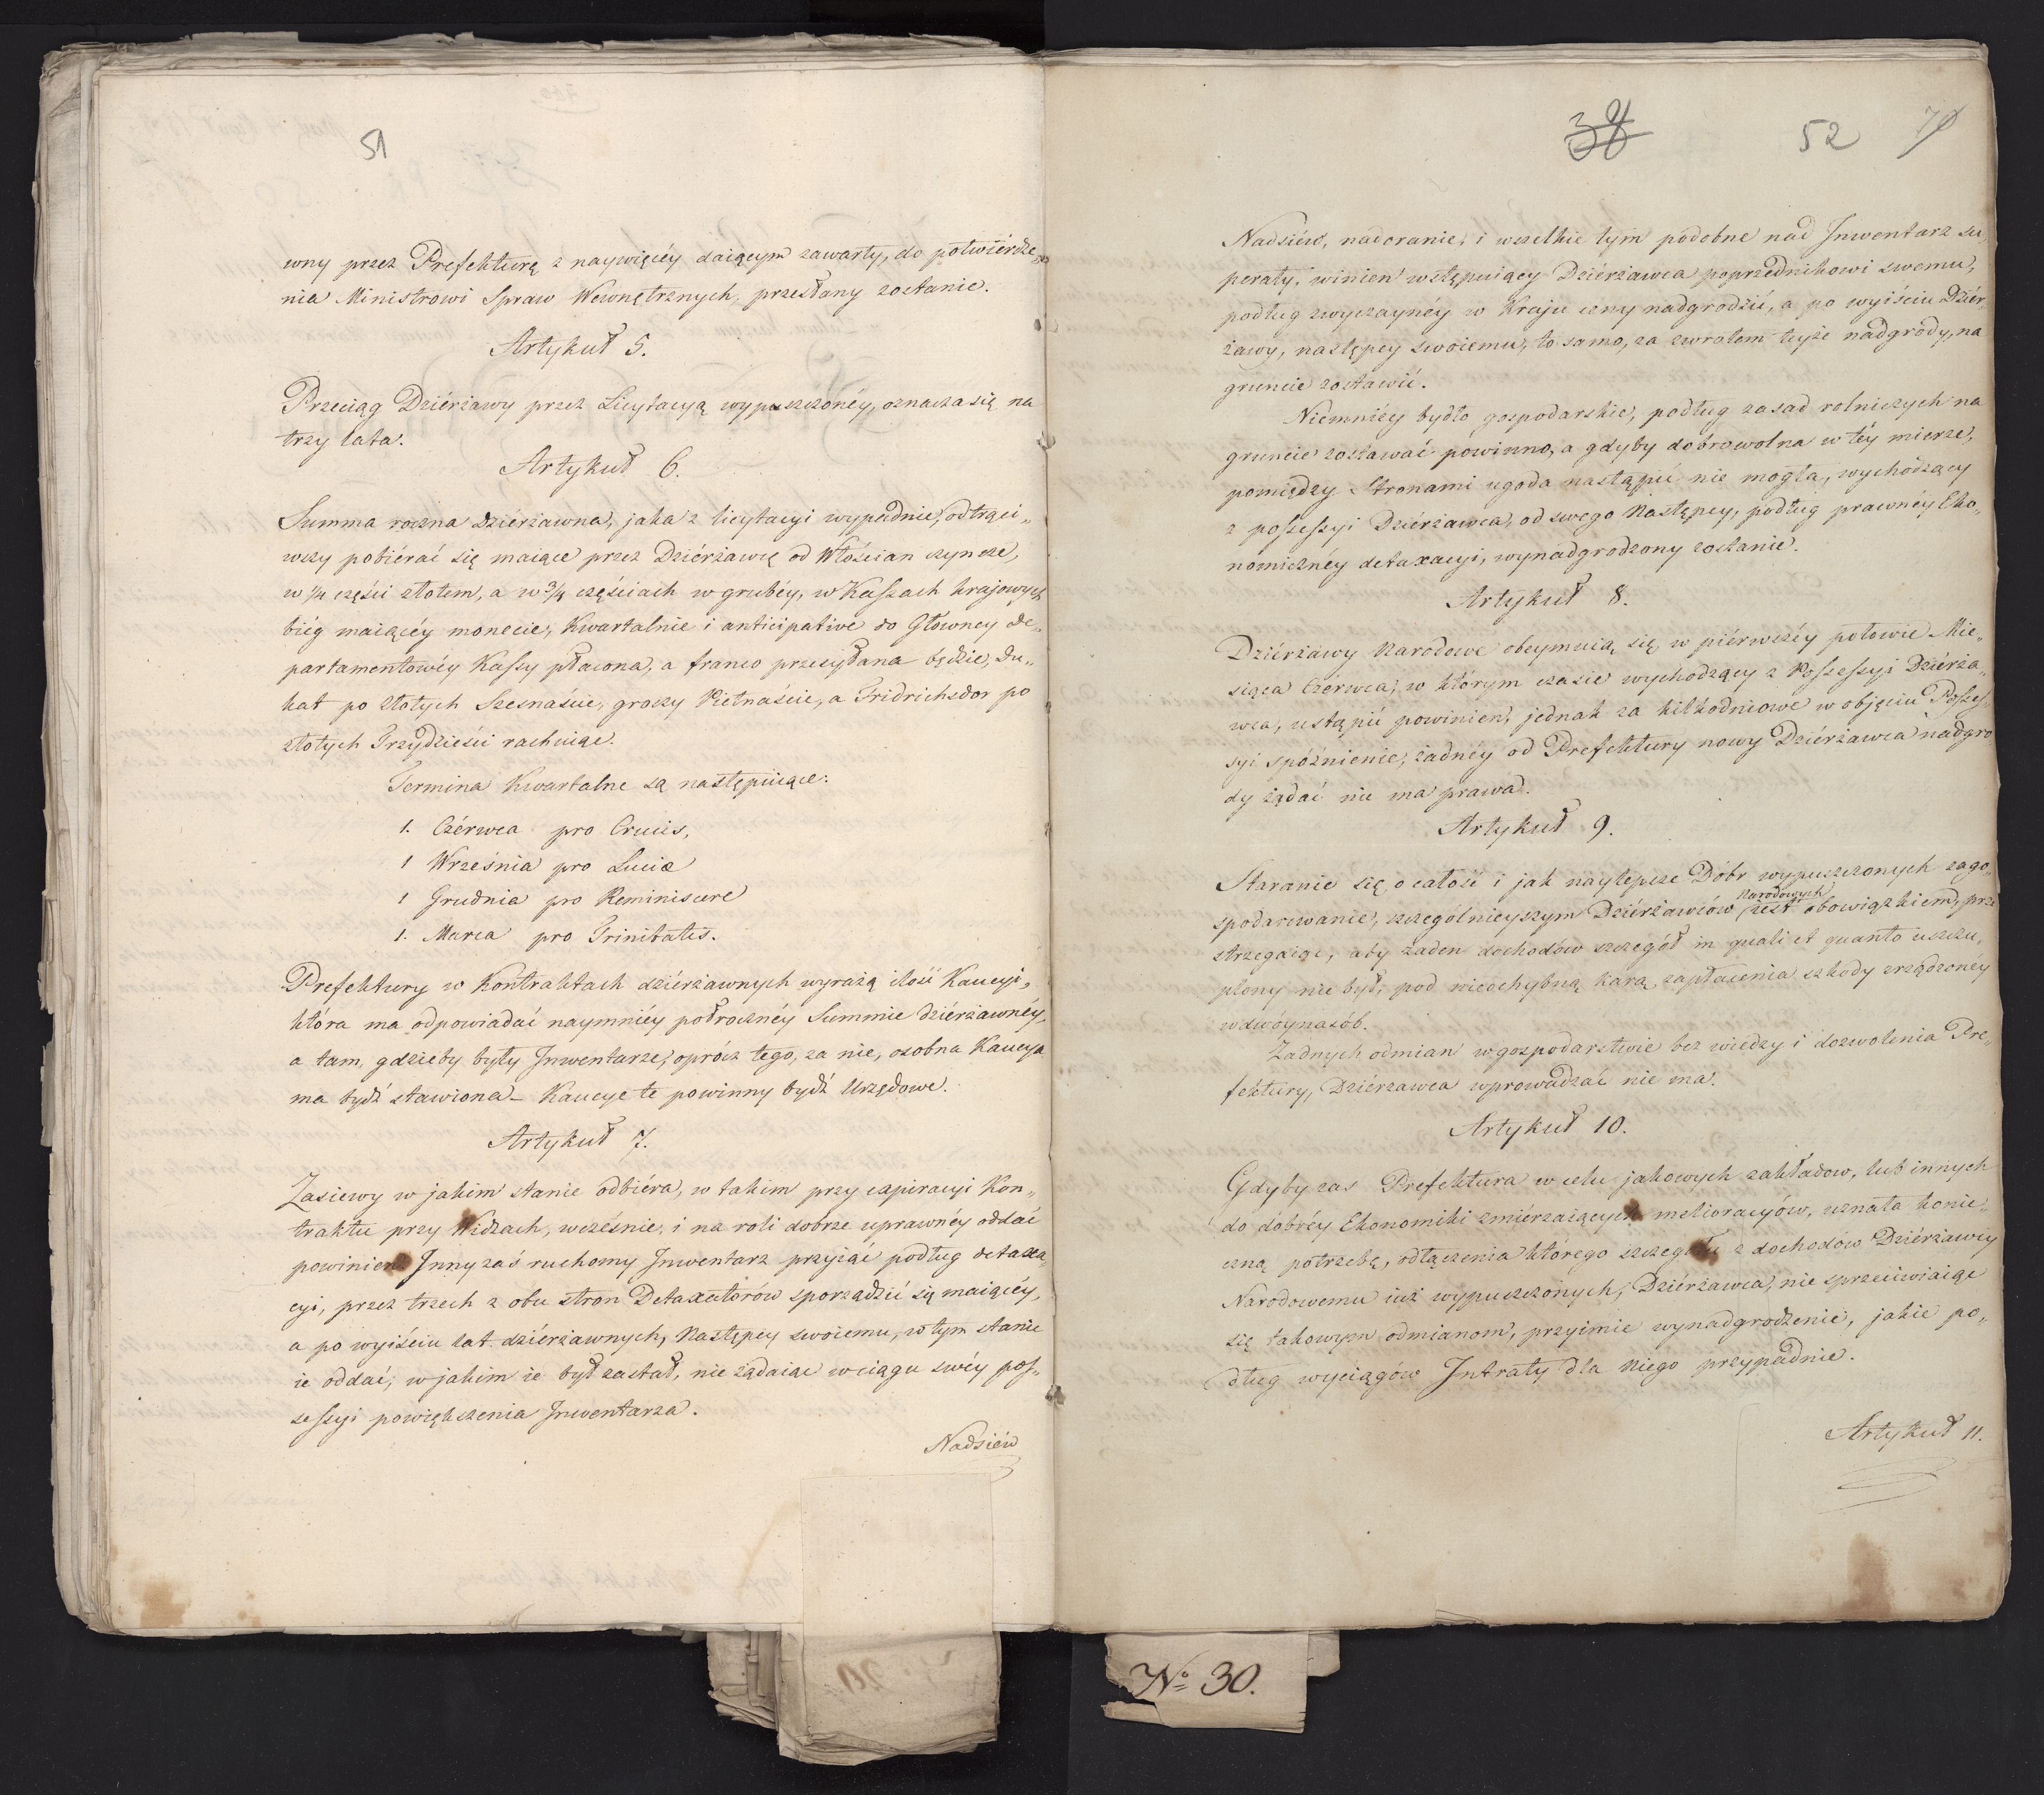 51
wny przez Prefekturę z naywięcéy daiącym zawarty, do potwiérdze„
nia Ministrowi Spraw Wewnętrznych, przesłany zostanie.
Artykuł 5.
Przeciąg Dziérżawy przez Licytacyą wypuszczonéy, oznacza się na
trzy lata.
Artykuł 6.
Summa roczna dziérżawna, jaka z licytacyi wypadnie, odtrąci„
wszy pobiérać się maiące przez Dziérżawcę od Włościan czynsze,
w 1/4 części złotem, a w 3/4 częściach w grubéy, w Kassach krajowych
biég maiącéy monecie, Kwartalnie i anticipative do Głowney De„
partamentowéy Kassy płacona, a franco przesyłana będzie, Du„
kat po złotych Szesnaście, groszy Pietnaście, a Fridrichsdor po
złotych Trzydzieści rachuiąc.
Termina Kwartalne są następuiące:
1. Czérwca pro Crucis,
1 Września pro Luciæ
1 Grudnia pro Reminiscere
1. Marca pro Trinitatis.
Prefektury w Kontraktach dziérżawnych wyrażą ilość Kaucyi„
która ma odpowiadać naymniéy połrocznéy Summie dziérżawnéy,
a tam, gdzieby były Inwentarze, oprócz tego, za nie, osobna Kaucya
ma bydź stawiona – Kaucye te powinny bydź Urzędowe.
Artykuł 7.
Zasiewy w jakim stanie odbiéra, w takim przy expiracyi Kon„
traktu przy Widzach, wcześnie, i na roli dobrze uprawnéy oddać
powinien. Inny zaś ruchomy Inwentarz przyiąć podług detaxa„
cyi, przez trzech z obu stron Detaxatorów sporządzić się maiącéy,
a po wyiściu lat dziérżawnych, Następcy swoiemu, w tym stanie
ie oddać, w jakim ie był zastał, nie żądaiąc w ciągu swéy pos„
sessyi powiększenia Inwentarza.
Nadsiéw
38 52 70
Nadsiéw, nadoranie, i wszelkie tym podobne nad Inwentarz su„
peraty, winien wstępuiący Dziérżawca poprzednikowi swemu,
podług zwyczaynéy w Kraju ceny nadgrodzić, a po wyiściu Dziér„
żawy, następcy swoiemu, to samo, za zwrotem teyże nadgrody, na
gruncie zostawić.
Niemniéy bydło gospodarskie, podług zasad rolniczych na
gruncie zostawać powinno, a gdyby dobrowolna w téy mierze,
pomiędzy Stronami ugoda nastąpić nie mogła, wychodzący
z possessyi Dziérżawca, od swego Następcy, podług prawnéy Eko„
nomicznéy detaxacyi, wynadgrodzony zostanie.
Artykuł 8.
Dziérżawy Narodowe obeymuią się w piérwszéy połowie Mie„
siąca Czérwca, w którym czasie wychodzący z Possessyi Dziérża„
wca, ustąpić powinien, jednak za kilkodniowe w objęciu Posses„
syi spóźnienie, żadnéy od Prefektury nowy Dziérżawca nadgro
dy żądać nie ma prawa.
Artykuł 9.
Staranie się o całość i jak naylepsze Dóbr wypuszczonych zago„
spodarowanie, szczególnieyszym Dziérżawców Narodowych jest obowiązkiem, prze
strzegaiąc, aby żaden dochodów szczegół in quali et quanto uszczu„
plony nie był, pod niechybną karą, zapłacenia szkody zrządzonéy
w dwóynasób.
Żadnych odmian w gospodarstwie bez wiedzy i dozwolenia Pre„
fektury, Dziérżawca wprowadzać nie ma.
Artykuł 10.
Gdyby zas Prefektura w celu jakowych zakładow, lub innych
do dobréy Ekonomiki zmiérzaiących melioracyów, uznała konie„
czną potrzebę, odłączenia którego szczegółu z dochodów Dziérżawcy
Narodowemu iuż wypuszczonych, Dziérżawca, nie sprzeciwiaiąc
się takowym odmianom, przyimie wynadgrodzenie, jakie po„
dług wyciągów Intraty dla niego przypadnie.
Artykuł 11.
No 30.